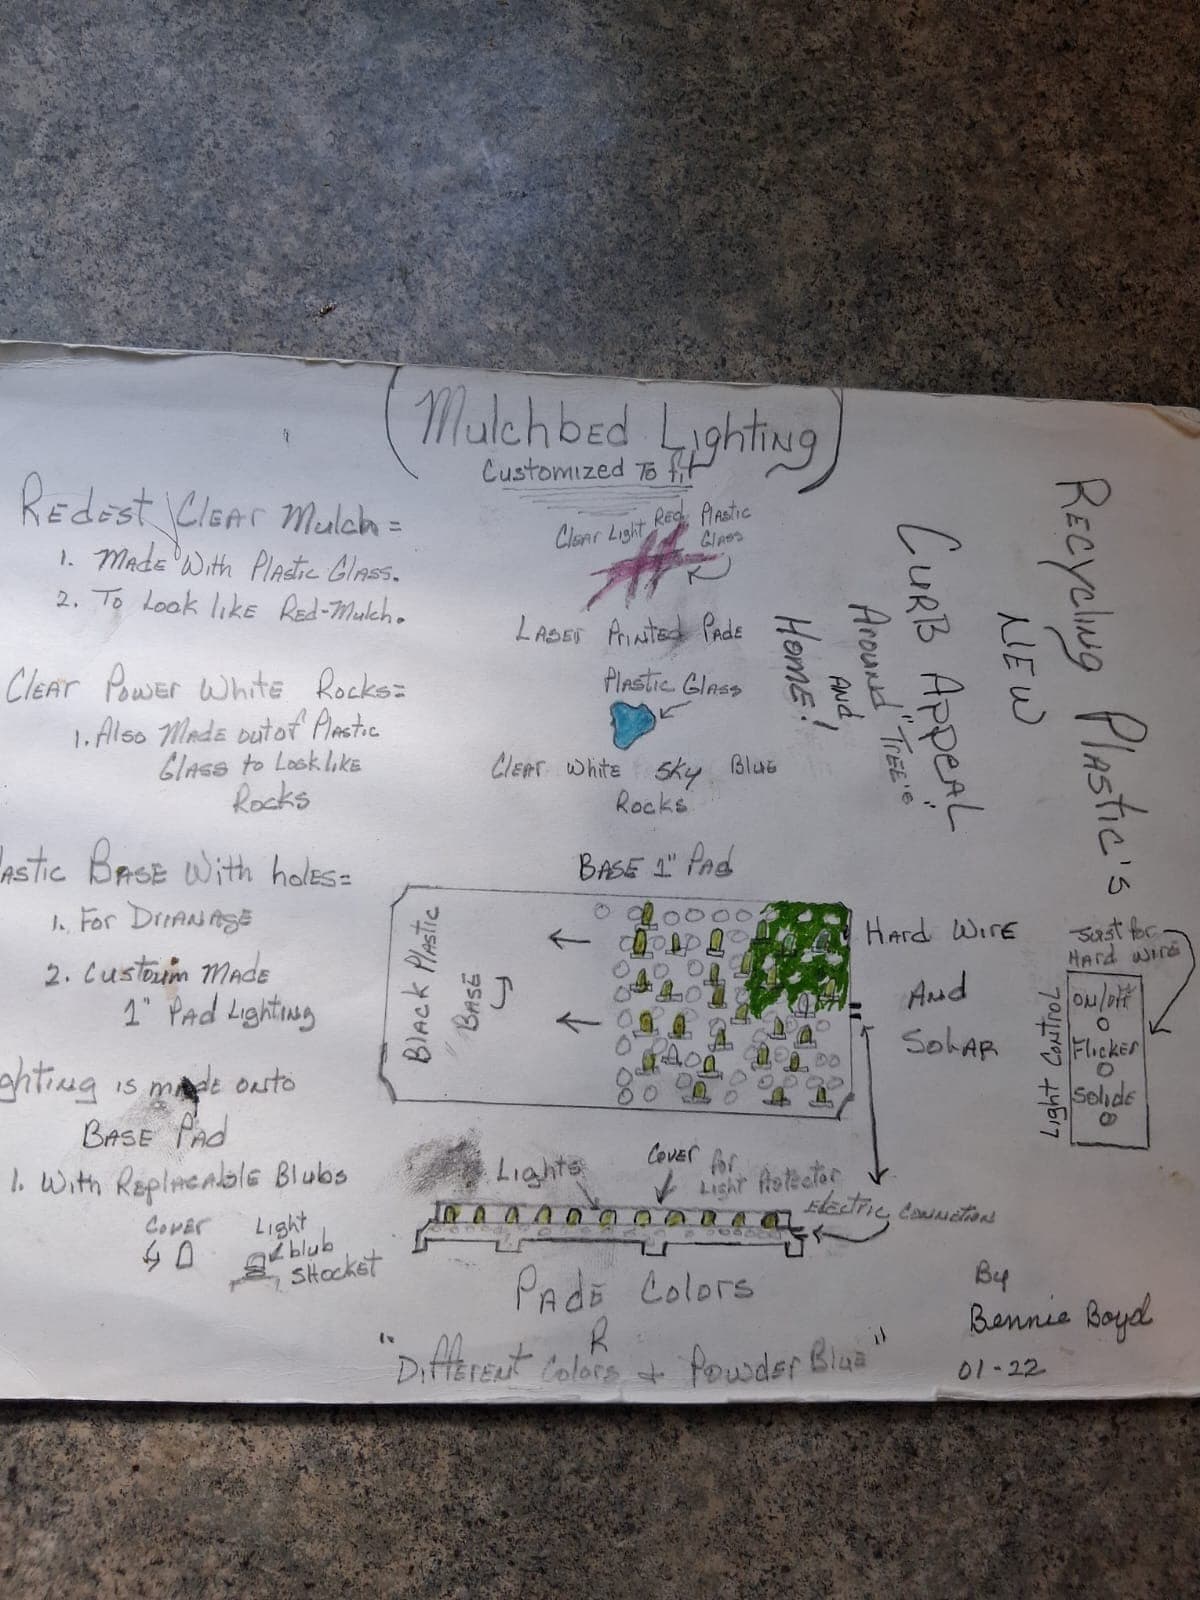 (Mulchbed Lighting)
Customized To fit
Redest Clear Mulch =
1. Made With Plastic Glass.
2. To Look like Red-Mulch.
Clear Power White Rocks=
1. Also Made out of Plastic
Glass to Look like
Rocks
astic Base With holes=
1. For Drianage
2. Custom Made
1" Pad Lighting
ghting is made onto
Base Pad
1. With Replacable Blubs
Cover
Light
blub
Shocket
Clear Light Red Plastic
Glass
Laser Printed Pade
Plastic Glass
Clear White Sky Blue
Rocks
Base 1" Pad
Black Plastic
"Base
Hard Wire
And
Solar
Lights
Cover for
Light Protector
Electric Connection
Pade Colors
R
"Different Colors & Powder Blue"
Recycling Plastic's
NEW
Curb Appeal
Around "Tree's"
And
Home!
Just for
Hard wire
Light Control
on/off
Flicker
Solide
By
Bennie Boyd
01-22